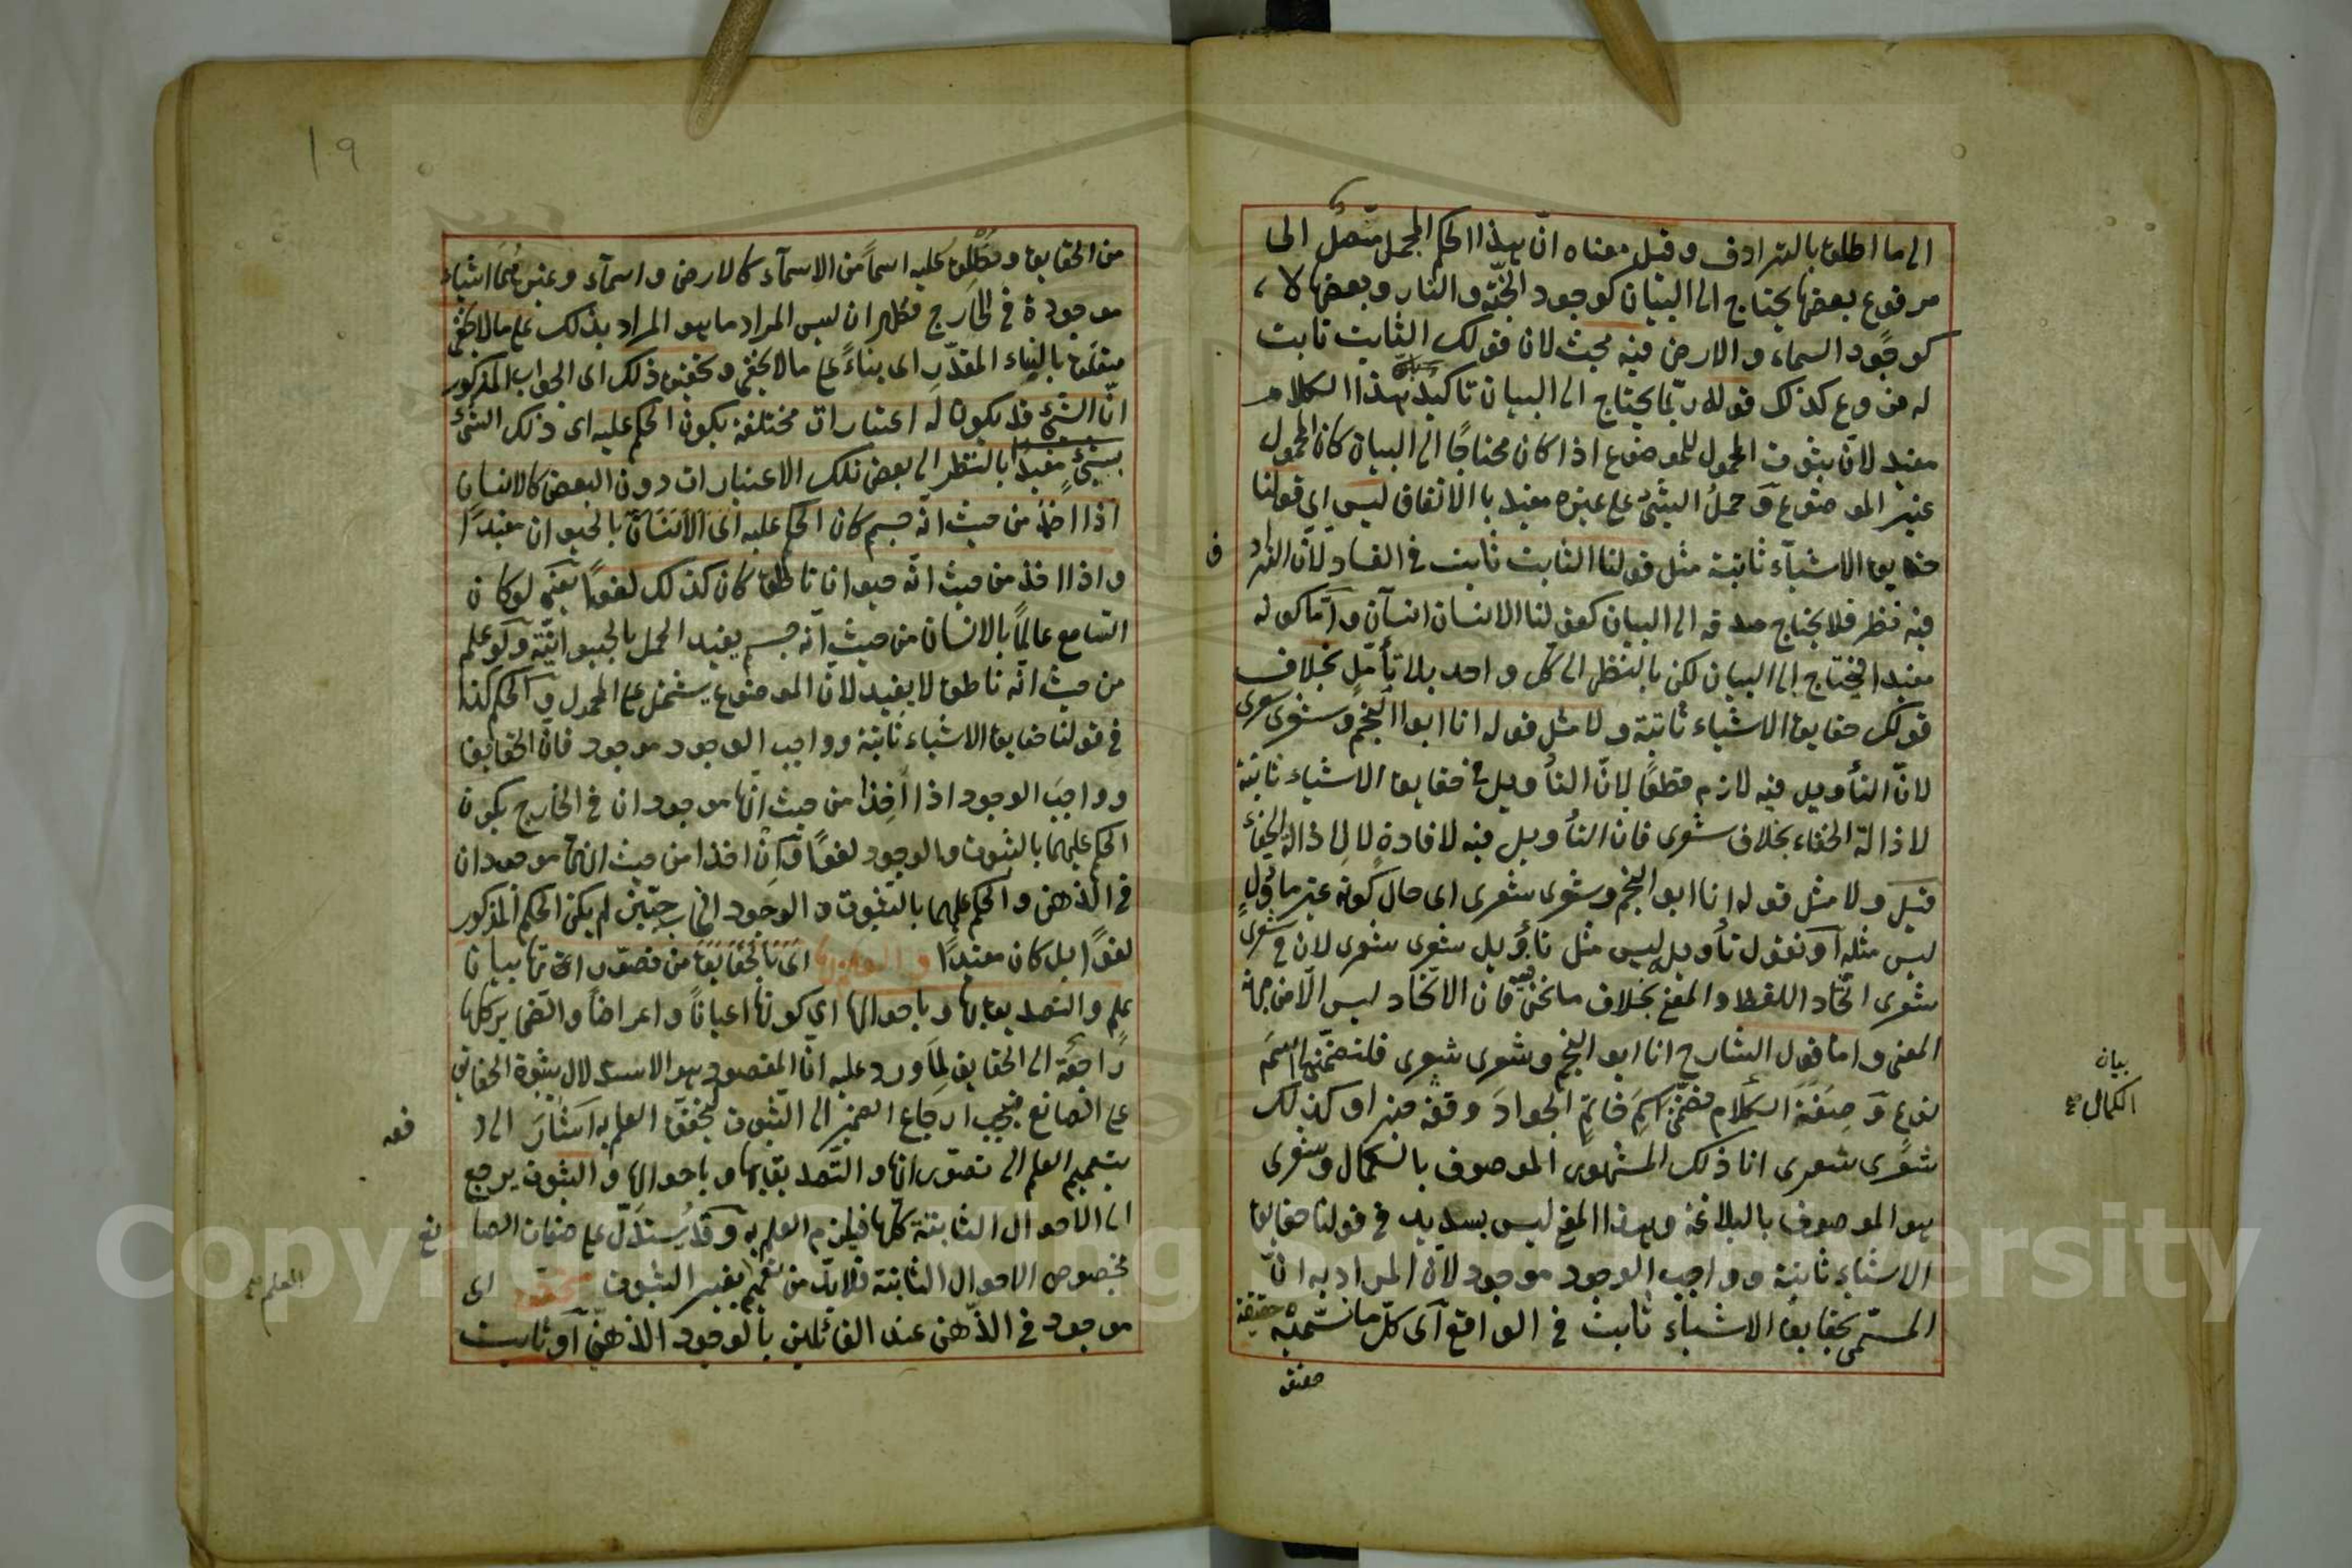 الى ما اطلق بالترادف وقيل معناه ان هذا الحكم المجمل متصل الى
مرفوع بعضها يحتاج الى البيان كوجود الجنة والنار وبعضها لا
كوجود السماء والارض فيه بحث لان قولك الثابت ثابت
كذلك قوله ربما يحتاج الى البيان تاكيد هذا الكلام
مفيد لان ثبوت المحمول للموضوع اذا كان محتاجًا الى البيان كان المحمول
غير الموضوع وحمل الشئ على غيره مفيد بالاتفاق ليس اى قولنا
حقايق الاشياء ثابتة مثل قولنا الثابت ثابت في الفساد لان
فيه نظر فلا يحتاج صدقه الى البيان كقولنا الانسان انسان واما كونه
مفيدا فيحتاج الى البيان لكن بالنظر الى كل واحد بلا تأمل بخلاف
قولك حقايق الاشياء ثابتة ولا مثل قوله انا ابو النجم وشعرى شعرى
لان التأويل فيه لازم قطعًا لان التأويل في حقايق الاشياء ثابتة
لازالة الخفاء بخلاف شعرى فان التأويل فيه لافادة لا لازالة الخفاء
قيل ولا مثل قوله انا ابو النجم وشعرى شعرى اى حال كونه غير مأول
ليس مثله او نقول تأويله ليس مثل تأويل شعرى شعرى لان في شعرى
شعرى اتحاد اللفظ والمعنى بخلاف ما نحن فيه فان الاتحاد ليس الا من جهة
المعنى واما قول الشارح انا ابو النجم وشعرى شعرى فلتضمنه اسم
نوع وصفة الكلام
شعرى شعرى انا ذلك المشهور الموصوف بالكمال وشعرى
هو الموصوف بالبلاغة وهذا المعنى ليس بسديد في قولنا حقايق
الاشياء ثابتة وواجب الوجود موجود لان المراد به ان
المسمى بحقايق الاشياء ثابت في الواقع اى كل ما نسميه حقيقة
بيان
الكمال صح
١٩
من الحقايق ونطلق عليه اسمًا من الاسماء كالارض واسماء وغيرهما اشياء
موجودة في الخارج فظهر ان ليس المراد ما هو المراد بذلك على ما لا يخفى
متعلق بالبناء المقدر اى بناءً على ما لا يخفى وتحقيق ذلك اى الجواب المذكور
ان الشئ قد يكون له اعتبارات مختلفة يكون الحكم عليه اى ذلك الشئ
بشئ مفيدًا بالنظر الى بعض تلك الاعتبارات دون البعض كالانسان
اذا اخذ من حيث انه جسم كان الحكم عليه اى الانسان بالحيوان مفيدًا
واذا اخذ من حيث انه حيوان ناطق كان كذلك لغوًا يعنى لو كان
السامع عالمًا بالانسان من حيث انه جسم يفيد الحمل بالحيوانية ولو علم
من حيث انه ناطق لا يفيد لان الموضوع يشتمل على المحمول والحكم كذا
في قولنا حقايق الاشياء ثابتة وواجب الوجود موجود فان الحقايق
وواجب الوجود اذا اخذا من حيث انها موجودان في الخارج يكون
الحكم عليهما بالثبوت والوجود لغوًا وان اخذا من حيث انهما موجودان
في الذهن والحكم عليهما بالثبوت والوجود الخارجيين لم يكن الحكم المذكور
لغوًا بل كان مفيدًا والعلم بها اى بالحقايق من تصوراتها بيانا
علم والتصديق بها وباحوالها اى كونها اعيانًا واعراضًا والضماير كلها
راجعة الى الحقايق لما ورد عليه ان المقصود هو الاستدلال بثبوت الحقايق
على الصانع فيجب ارجاع الضمير الى الثبوت ليخفق العلم به اشار الى د
بتعميم العلم الى تصوراتها والتصديق بها وباحوالها والثبوت يرجع
الى الاحوال الثابتة كلها فيلزم العلم به وقد يستدل على صفات الصا
نع
بخصوص الاحوال الثابتة فلا بد من تعميم بغير الثبوت متحقق اى
موجود في الذهن عند القائلين بالوجود الذهنى او ثابت
العلم